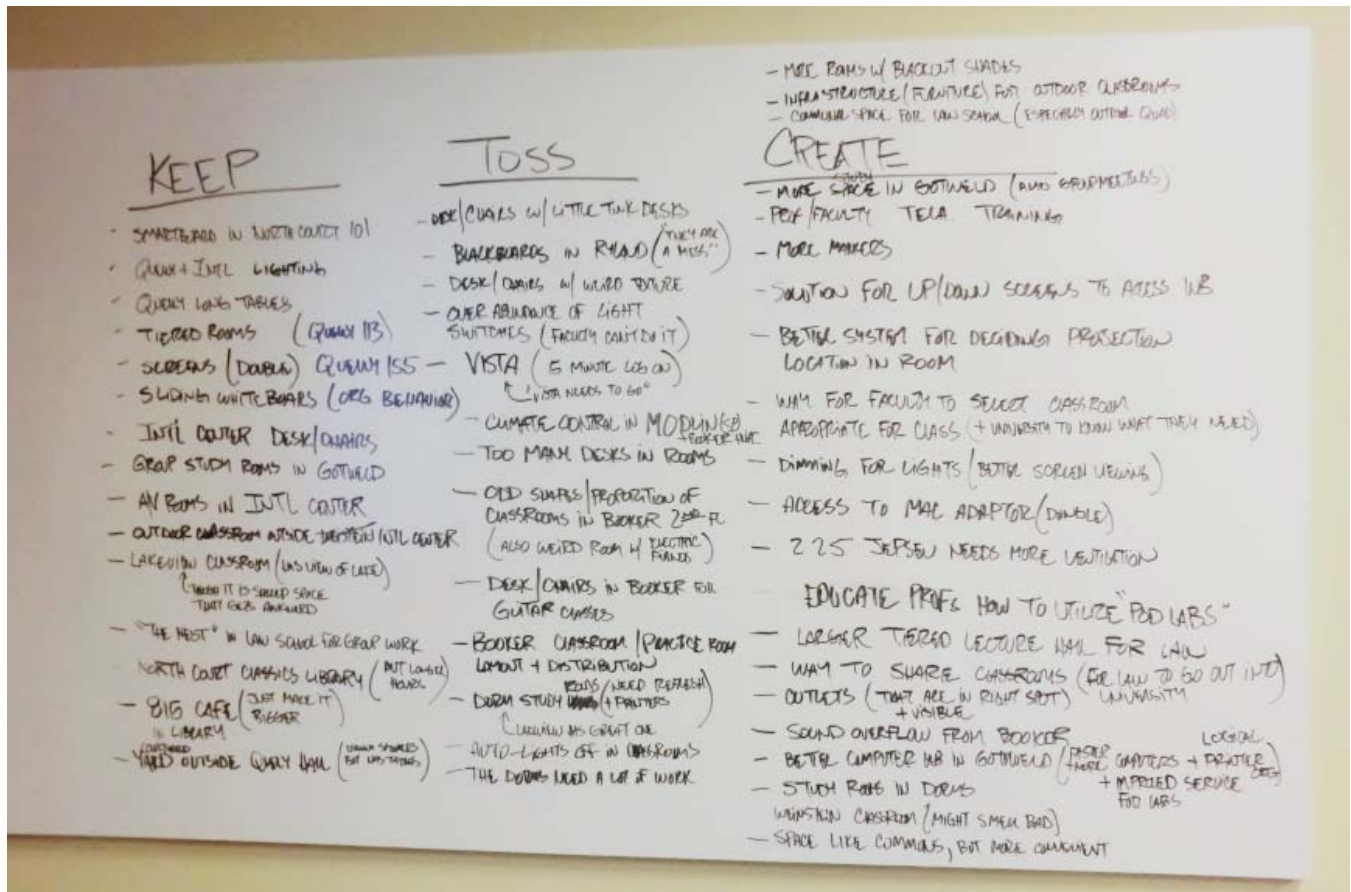 KEEP
- SMARTBOARD IN NORTH COURT 101
- QUEALLY + INTL LIGHTING
- QUEALLY LONG TABLES
- TIERED ROOMS (QUEALLY 113)
- SCREENS (DOUBLE) QUEALLY 155
- SLIDING WHITEBOARDS (ORG BEHAVIOR)
- INTL CENTER DESK/CHAIRS
- GROUP STUDY ROOMS IN GOTWELD
- AV ROOMS IN INTL CENTER
- OUTDOOR CLASSROOM OUTSIDE INTL CENTER
- LAKEVIEW CLASSROOM (HAS VIEW OF LAKE)
IT IS SHARED SPACE
THAT GETS AWKWARD
- "THE NEST" IN LAW SCHOOL FOR GROUP WORK
NORTH COURT CLASSICS LIBRARY (BUT LONGER HOURS)
- 815 CAFE (JUST MAKE IT BIGGER)
IN LIBRARY
- YARD OUTSIDE QUEALLY HALL
TOSS
- DESK/CHAIRS W/ LITTLE TINY DESKS
- BLACKBOARDS IN RYLAND ("THEY ARE A MESS")
- DESK/CHAIRS W/ WEIRD TEXTURE
- OVER ABUNDANCE OF LIGHT
SWITCHES (FACULTY CAN'T DO IT)
- VISTA (5 MINUTE LOG ON)
"VISTA NEEDS TO GO"
- CLIMATE CONTROL IN MODLIN
+ BOOKER HALL
- TOO MANY DESKS IN ROOMS
- OLD SHAPES/PROPORTION OF
CLASSROOMS IN BOOKER 2ND FL
(ALSO WEIRD ROOM W/ ELECTRIC PIANOS)
- DESK/CHAIRS IN BOOKER FOR
GUITAR CLASSES
- BOOKER CLASSROOM/PRACTICE ROOM
LAYOUT + DISTRIBUTION
- DORM STUDY ROOMS/NEED REFRESH (+ PRINTERS)
LAKEVIEW HAS GREAT ONE
- AUTO-LIGHTS OFF IN CLASSROOMS
- THE DORMS NEED A LOT OF WORK
- MORE ROOMS W/ BLACKOUT SHADES
- INFRASTRUCTURE (FURNITURE) FOR OUTDOOR CLASSROOMS
- COMMUNAL SPACE FOR LAW SCHOOL (ESPECIALLY OUTDOOR QUAD)
CREATE
- MORE STUDY SPACE IN GOTWELD (AND GROUP MEETINGS)
- PROF/FACULTY TECH. TRAINING
- MORE MARKERS
- SOLUTION FOR UP/DOWN SCREENS TO ACCESS WB
- BETTER SYSTEM FOR DECIDING PROJECTION
LOCATION IN ROOM
- WAY FOR FACULTY TO SELECT CLASSROOM
APPROPRIATE FOR CLASS (+ UNIVERSITY TO KNOW WHAT THEY NEED)
- DIMMING FOR LIGHTS (BETTER SCREEN VIEWING)
- ACCESS TO MAC ADAPTOR (DONGLE)
- 225 JEPSEN NEEDS MORE VENTILATION
EDUCATE PROFS HOW TO UTILIZE "POD LABS"
- LARGER TIERED LECTURE HALL FOR LAW
- WAY TO SHARE CLASSROOMS (FOR LAW TO GO OUT INTO
UNIVERSITY
- OUTLETS (THAT ARE IN RIGHT SPOT)
+ VISIBLE
- SOUND OVERFLOW FROM BOOKER
- BETTER COMPUTER LAB IN GOTWELD (FASTER + MORE COMPUTERS + LOGICAL PRINTER
+ SERVICE
FOR LABS
- STUDY ROOMS IN DORMS
WEINSTEIN CLASSROOM (MIGHT SMELL BAD)
- SPACE LIKE COMMONS, BUT MORE CONVENIENT